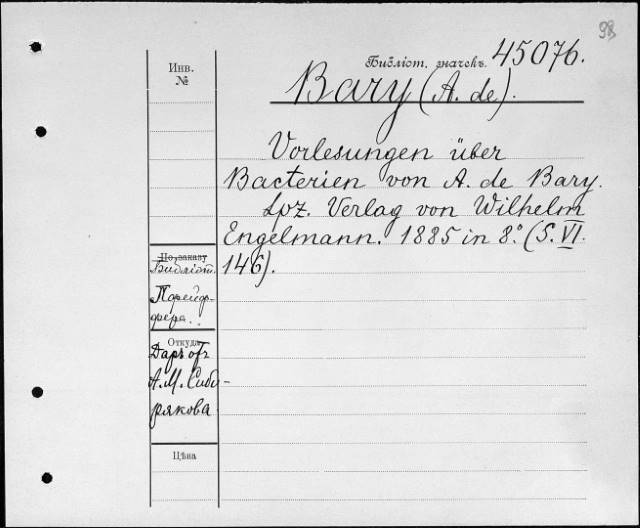 98
Библіот. значекъ. 45076.
Инв.
№
Bary (A. de).
Vorlesungen über
Bacterien von A. de Bary.
Lpz. Verlag von Wilhelm
Engelmann. 1885 in 8.° (S. VI.
146).
По заказу
Библіот.
Откуда
Даръ отъ
А. М. Сиби-
рякова
Цѣна